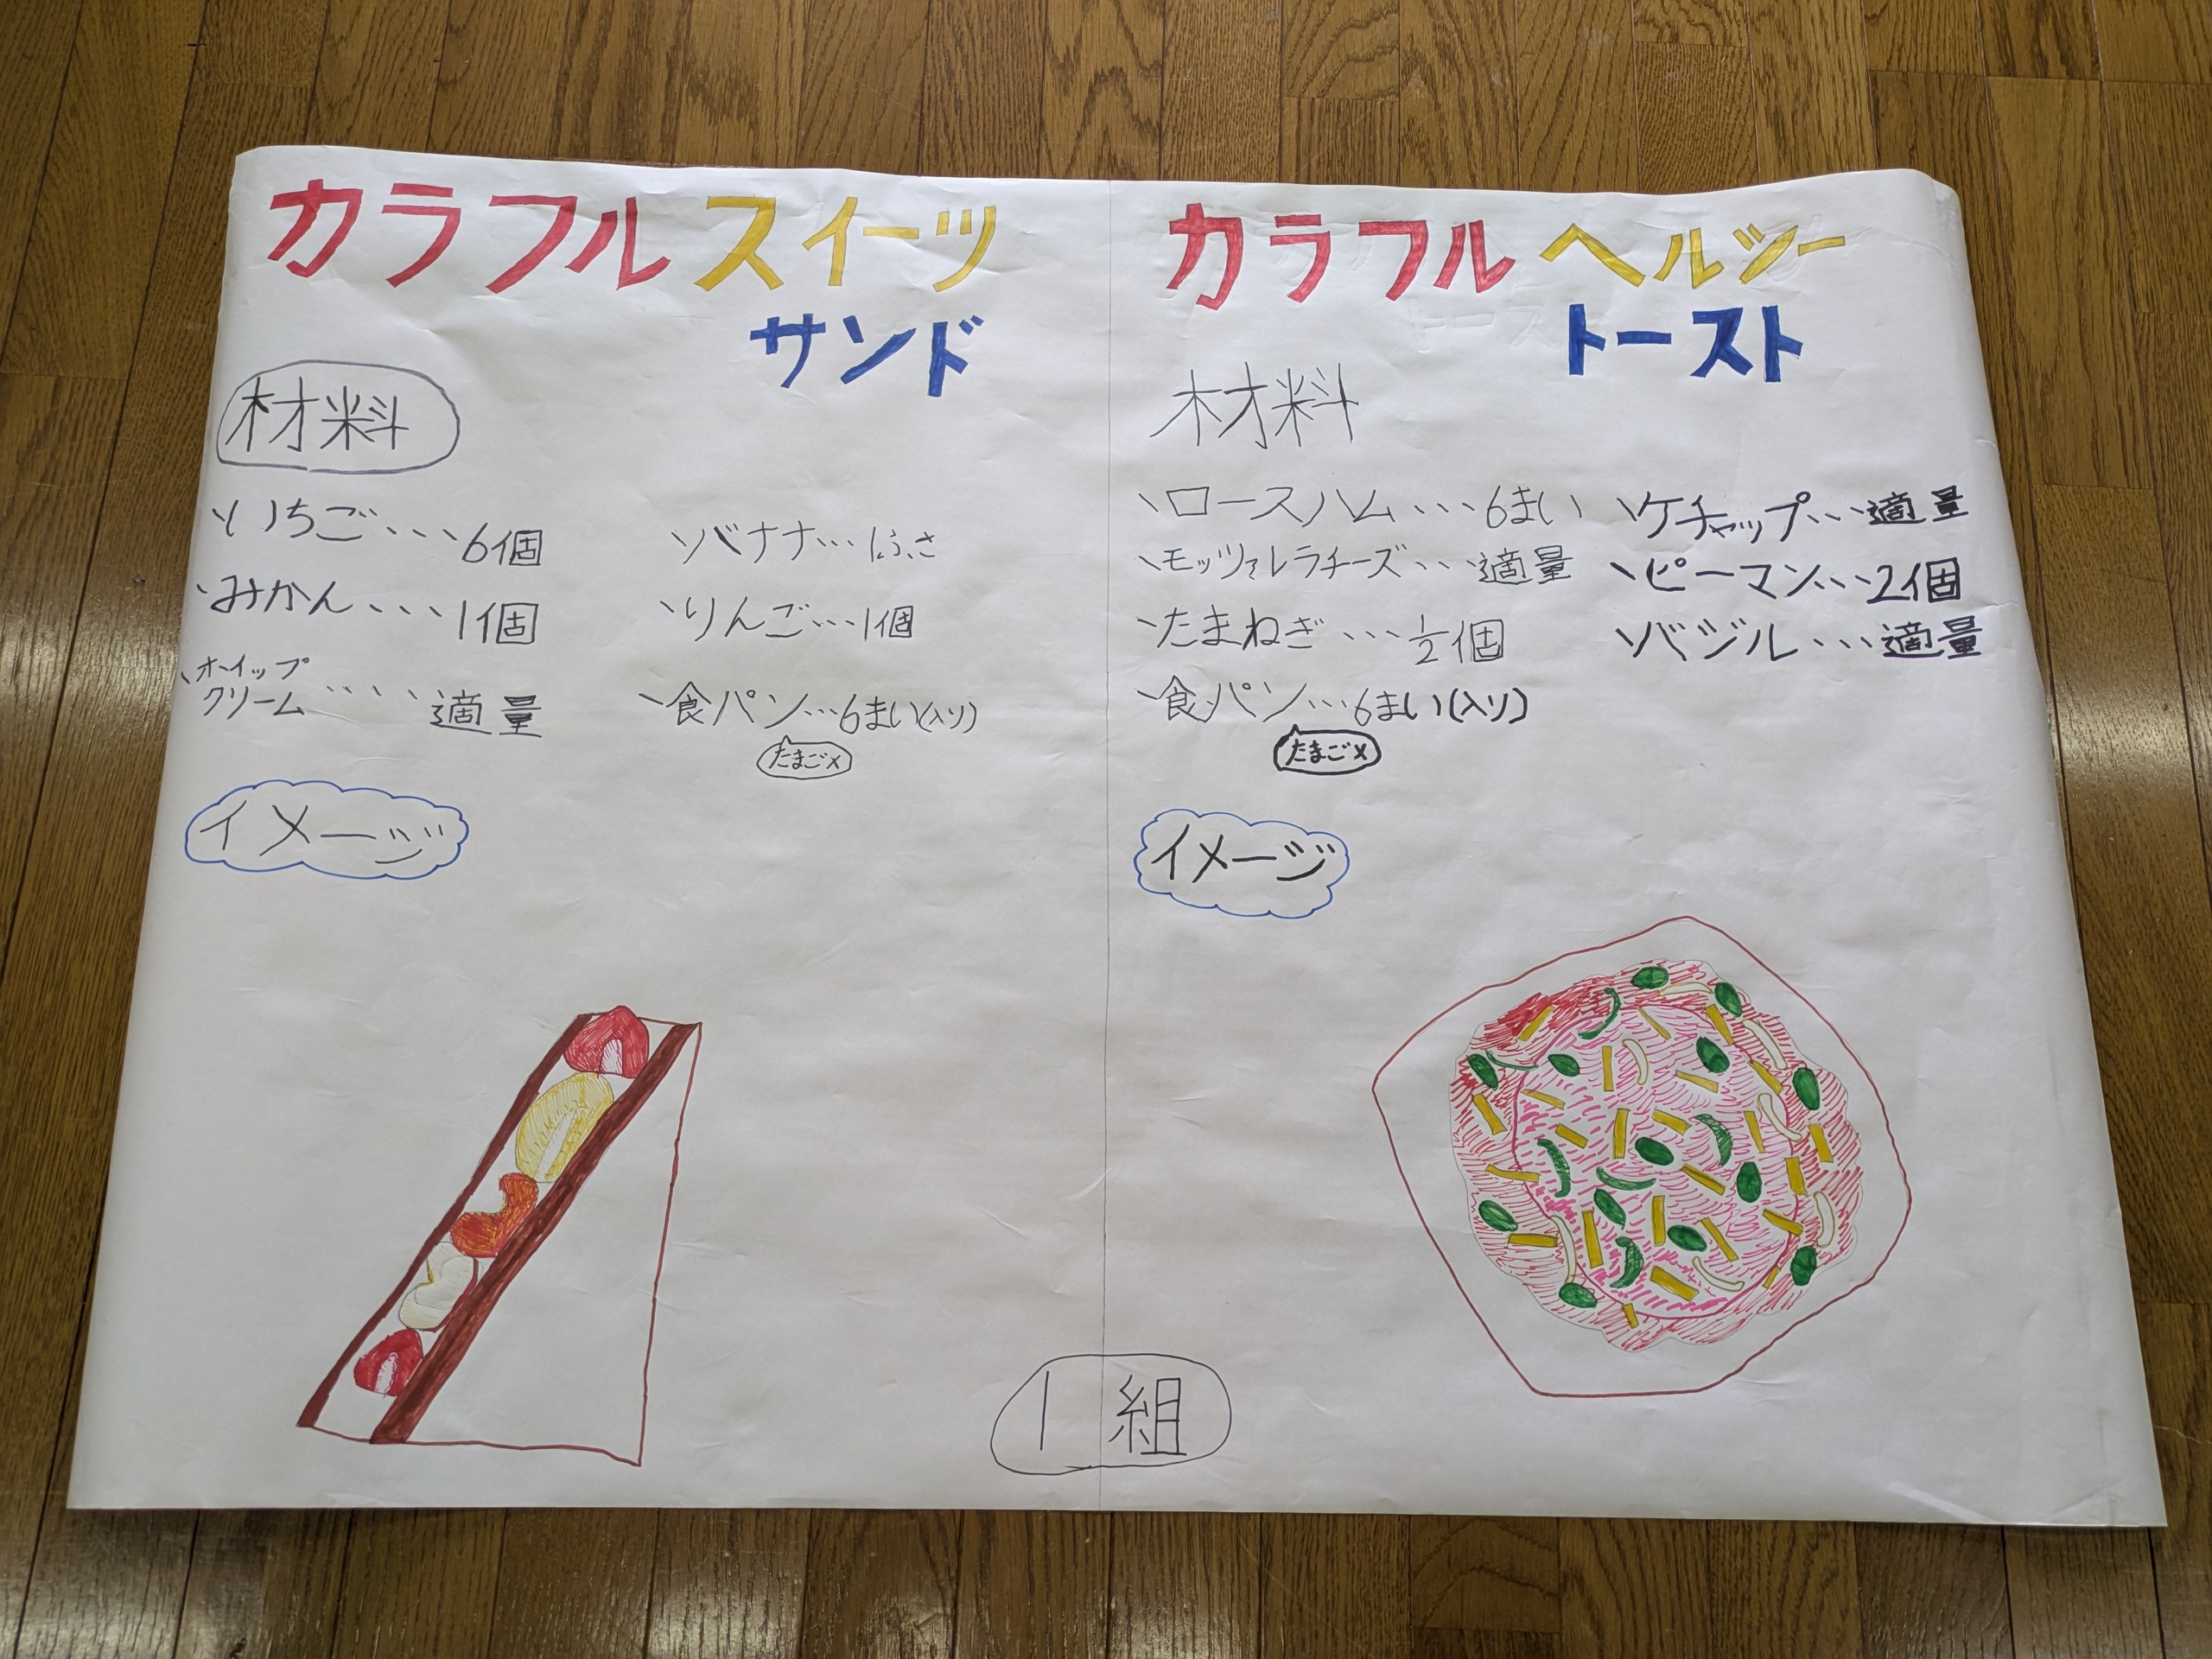 カラフルスイーツ
サンド
材料
、いちご・・・・6個
、みかん・・・・1個
、ホイップ
クリーム・・・・・適量
、バナナ・・・1ふさ
、りんご・・・1個
、食パン・・・6まい(入り)
たまご×
イメージ
カラフルヘルシー
トースト
材料
、ロースハム・・・6まい
、モッツァレラチーズ・・・適量
、たまねぎ・・・1/2個
、食パン・・・6まい(入り)
たまご×
、ケチャップ・・・適量
、ピーマン・・・2個
、バジル・・・適量
イメージ
1組